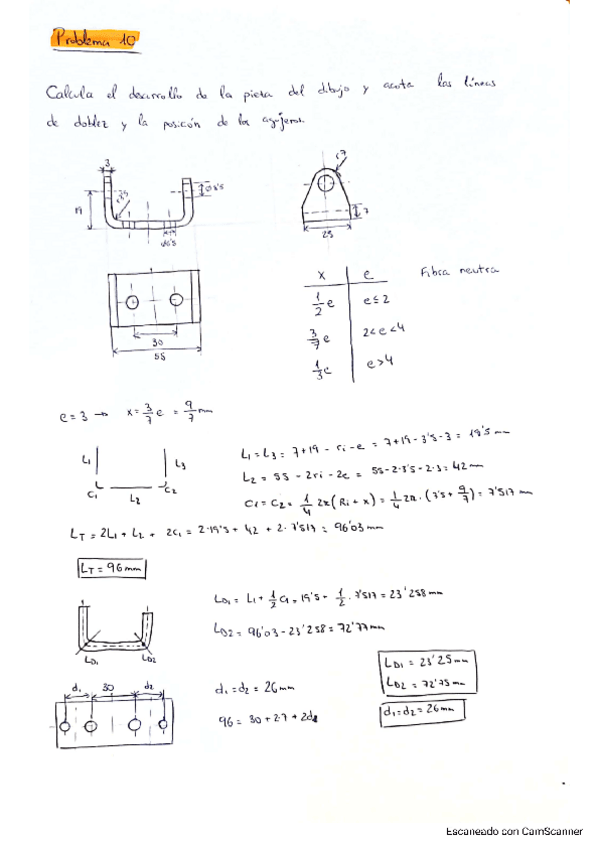 Problema 10
Calcula el desarrollo de la pieza del dibujo y acota las líneas
de doblez y la posición de los agujeros.
3
19
r3'5
Ø8'5
r7
7
25
30
55
x e Fibra neutra
1/2 e e≤2
3/7 e 2<e<4
1/3 e e>4
e = 3 → x = 3/7 e = 9/7 mm
L1 L3
C1 L2 C2
L1 = L3 = 7+19 - ri - e = 7+19 - 3'5 - 3 = 19'5 mm
L2 = 55 - 2ri - 2e = 55 - 2·3'5 - 2·3 = 42 mm
C1 = C2 = 1/4 2π(Ri + x) = 1/4 2π · (3'5 + 9/7) = 7'517 mm
LT = 2L1 + L2 + 2C1 = 2·19'5 + 42 + 2·7'517 = 96'03 mm
LT = 96 mm
LD1 = L1 + 1/2 C1 = 19'5 + 1/2 · 7'517 = 23'258 mm
LD2 = 96'03 - 23'258 = 72'77 mm
LD1 LD2
LD1 = 23'25 mm
LD2 = 72'75 mm
d1 30 d2
d1 = d2 = 26 mm
d1 = d2 = 26 mm
96 = 30 + 2·7 + 2d2
Escaneado con CamScanner